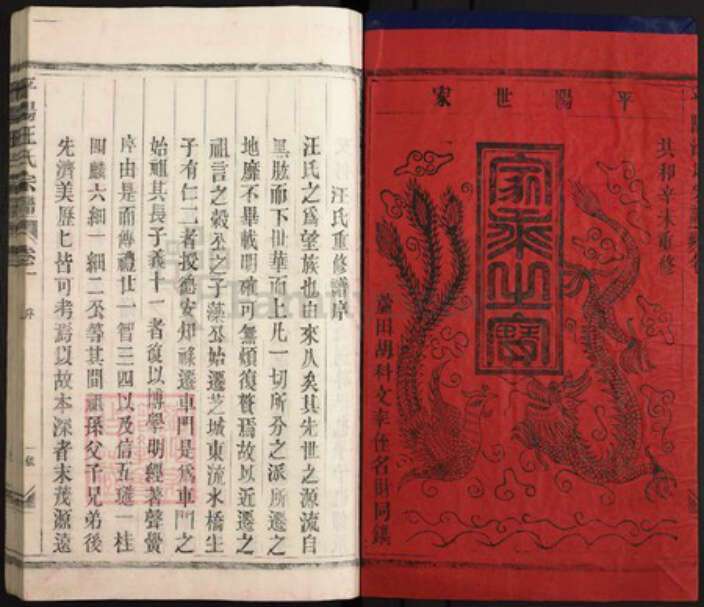 平陽世家
共和辛未重修
家乘之寶
臺田胡科文奉仕名財同鎸
汪氏重修譜序
汪氏之爲望族也由來久矣其先世之源流自
黑肱而下世華而上凡一切所分之派所遷之
地廉不畢載明確可無煩復贅焉故以近遷之
祖言之穀公之子藻公始遷芝城東流水橋生
子有仁二者授鶴安知祿遷車門是爲車門之
始祖其長子義十一者復以博學明經著聲黌
序由是而傳禮廿一智三四以及信五璡一桂
四麟六細一細二公等其間祖孫父子兄弟後
先濟美歷七皆可考焉以故本深者末茂源遠
平陽汪氏宗譜
卷一
序
一